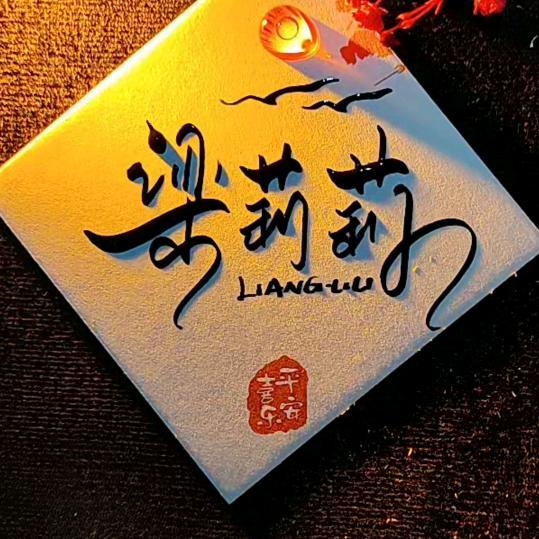 梁莉莉
LIANG-LILI
平安
喜乐